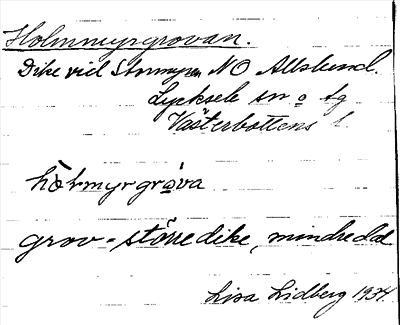 Holmmyrgrovan.
Dike vid Stormyren NO Allslund.
Lycksele sn o tg
Västerbottens l.
hòlmyrgrò̱va
grov = större dike, mindre dal
Lisa Lidberg 1934.